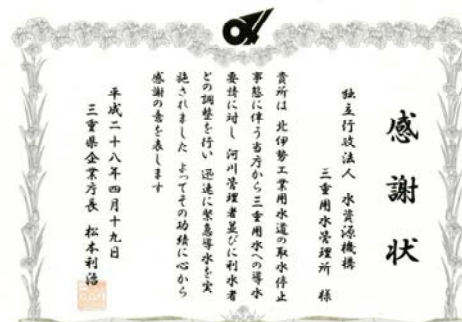 感謝状
独立行政法人 水資源機構
三重用水管理所 様
貴所は 北伊勢工業用水道の取水停止
事態に伴う当庁から三重用水への導水
要請に対し 河川管理者並びに利水者
との調整を行い 迅速に緊急導水を実
施されました よってその功績に心から
感謝の意を表します
平成二十八年四月十九日
三重県企業庁長 松本利治